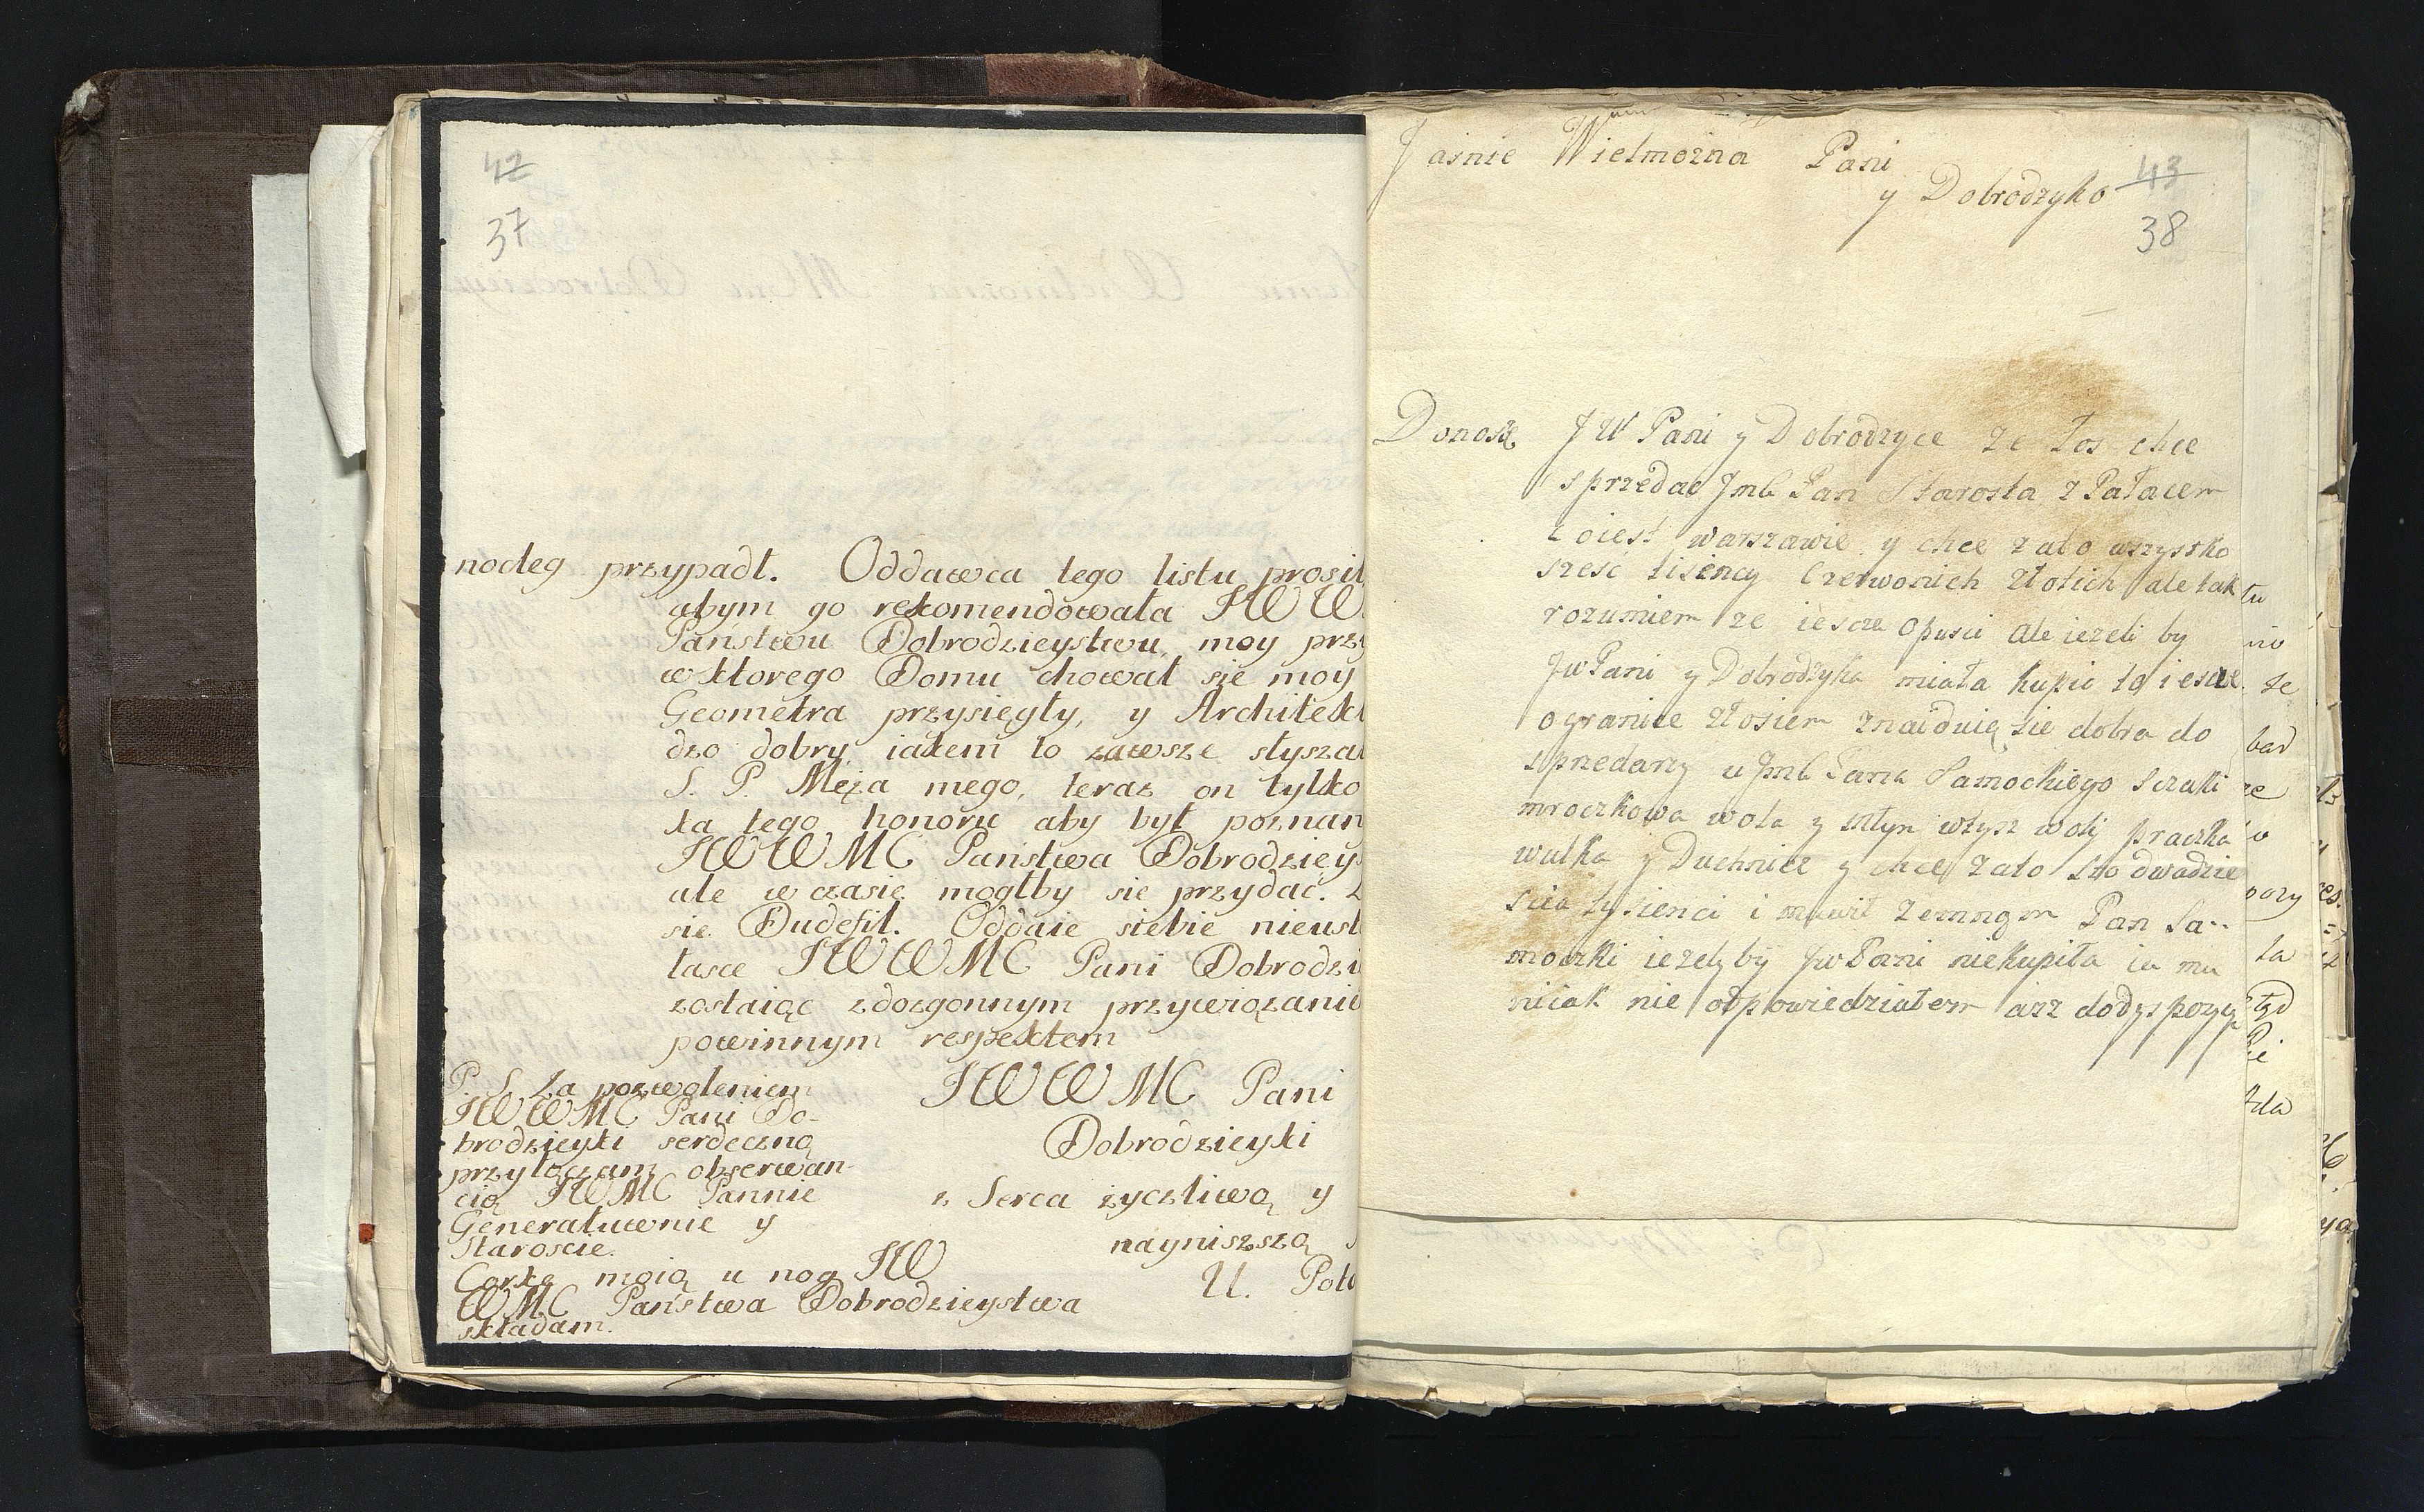 42
37
nocleg przypadł. Oddawca tego listu prosił
abym go rekomendowała JWW
Państwu Dobrodzieystwu, moy przy
w ktorego Domu chował się moy
Geometra przysięgły, y Architekt
dzo dobry, iakem to zawsze słysza
S. P. Męża mego, teraz on tylko
ka tego honoru aby był poznan
JWWMC Państwa Dobrodziey
ale w czasie mogłby się przydać.
się Oddaie siebie nieust
łasce JWWMC Pani Dobrodzi
zostaiąc z dozgonnym przywiązanie
powinnym respektem
JWWMC Pani
Dobrodzieyki
z Serca życzliwą y
nayniszszą
U. Poto
P. S. Za pozwoleniem
JWWMC Pani Do-
brodzieyki serdeczną
przyłączam obserwan-
cią JWMC Pannie
Generałuwnie y
Staroscie.
Corkę moią u nog JW
WMC Państwa Dobrodzieystwa
składam.
Jasnie Wielmozna Pani
y Dobrodzyko
43
38
Donoszę JW Pani y Dobrodzyce ze Łos chce
sprzedac Jmc Pan Starosta z Pałacem
co iest warszawie y chce zato wszystko
szesc tisency Czerwonich złotich ale tak
rozumiem ze iescze opusci ale iezeli by
Jw Pani y Dobrodzyka miała kupic to iescze
ogranice złosiem znaiduią sie dobra do
sprzedany u Jmc Pana Samockiego Sczaki
mroczkowa wola y młyn wtysz woli praczka
wulka y Duchnice y chce zato sto dwadzie
scia tysienci i muwił zemnom Pan Sa-
moczki iezelyby Jw Pani niekupiła ia mu
niiak nie odpowiedziałem asz dodyspozyc